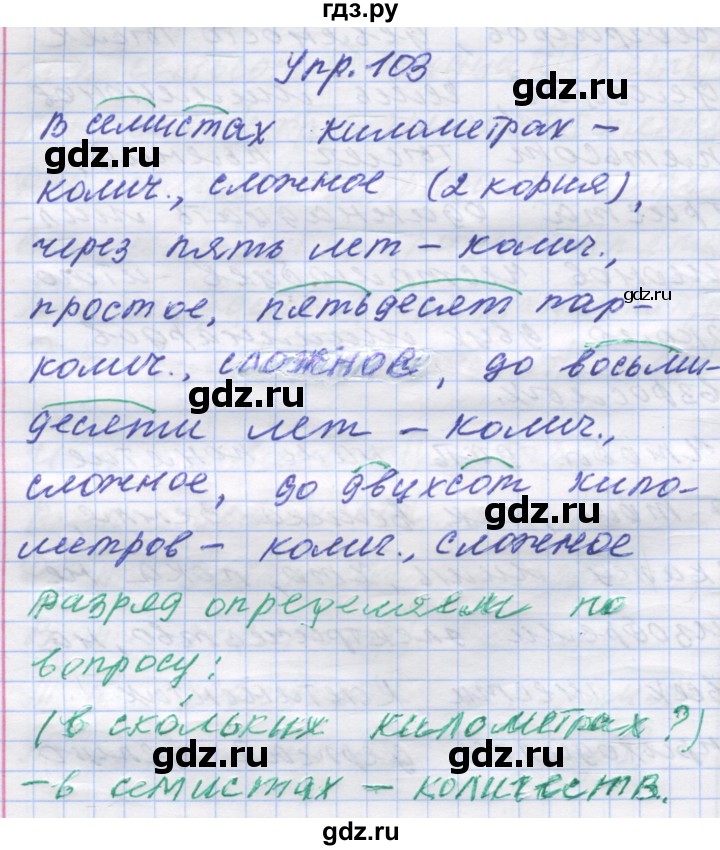 гдз.ру
Упр. 103
В семистах километрах –
gdz.ru
gdz.ru
колич., сложное (2 корня),
через пять лет – колич.,
простое, пятьдесят пар –
gdz.ru
колич., сложное, до восьми-
gdz.ru
десяти лет – колич.,
сложное, до двухсот кило-
gdz.ru
метров – колич., сложное
Разряд определяем по
вопросу:
(в скольких километрах?)
gdz.ru
gdz.ru
– в семистах – количеств.
gdz.ru